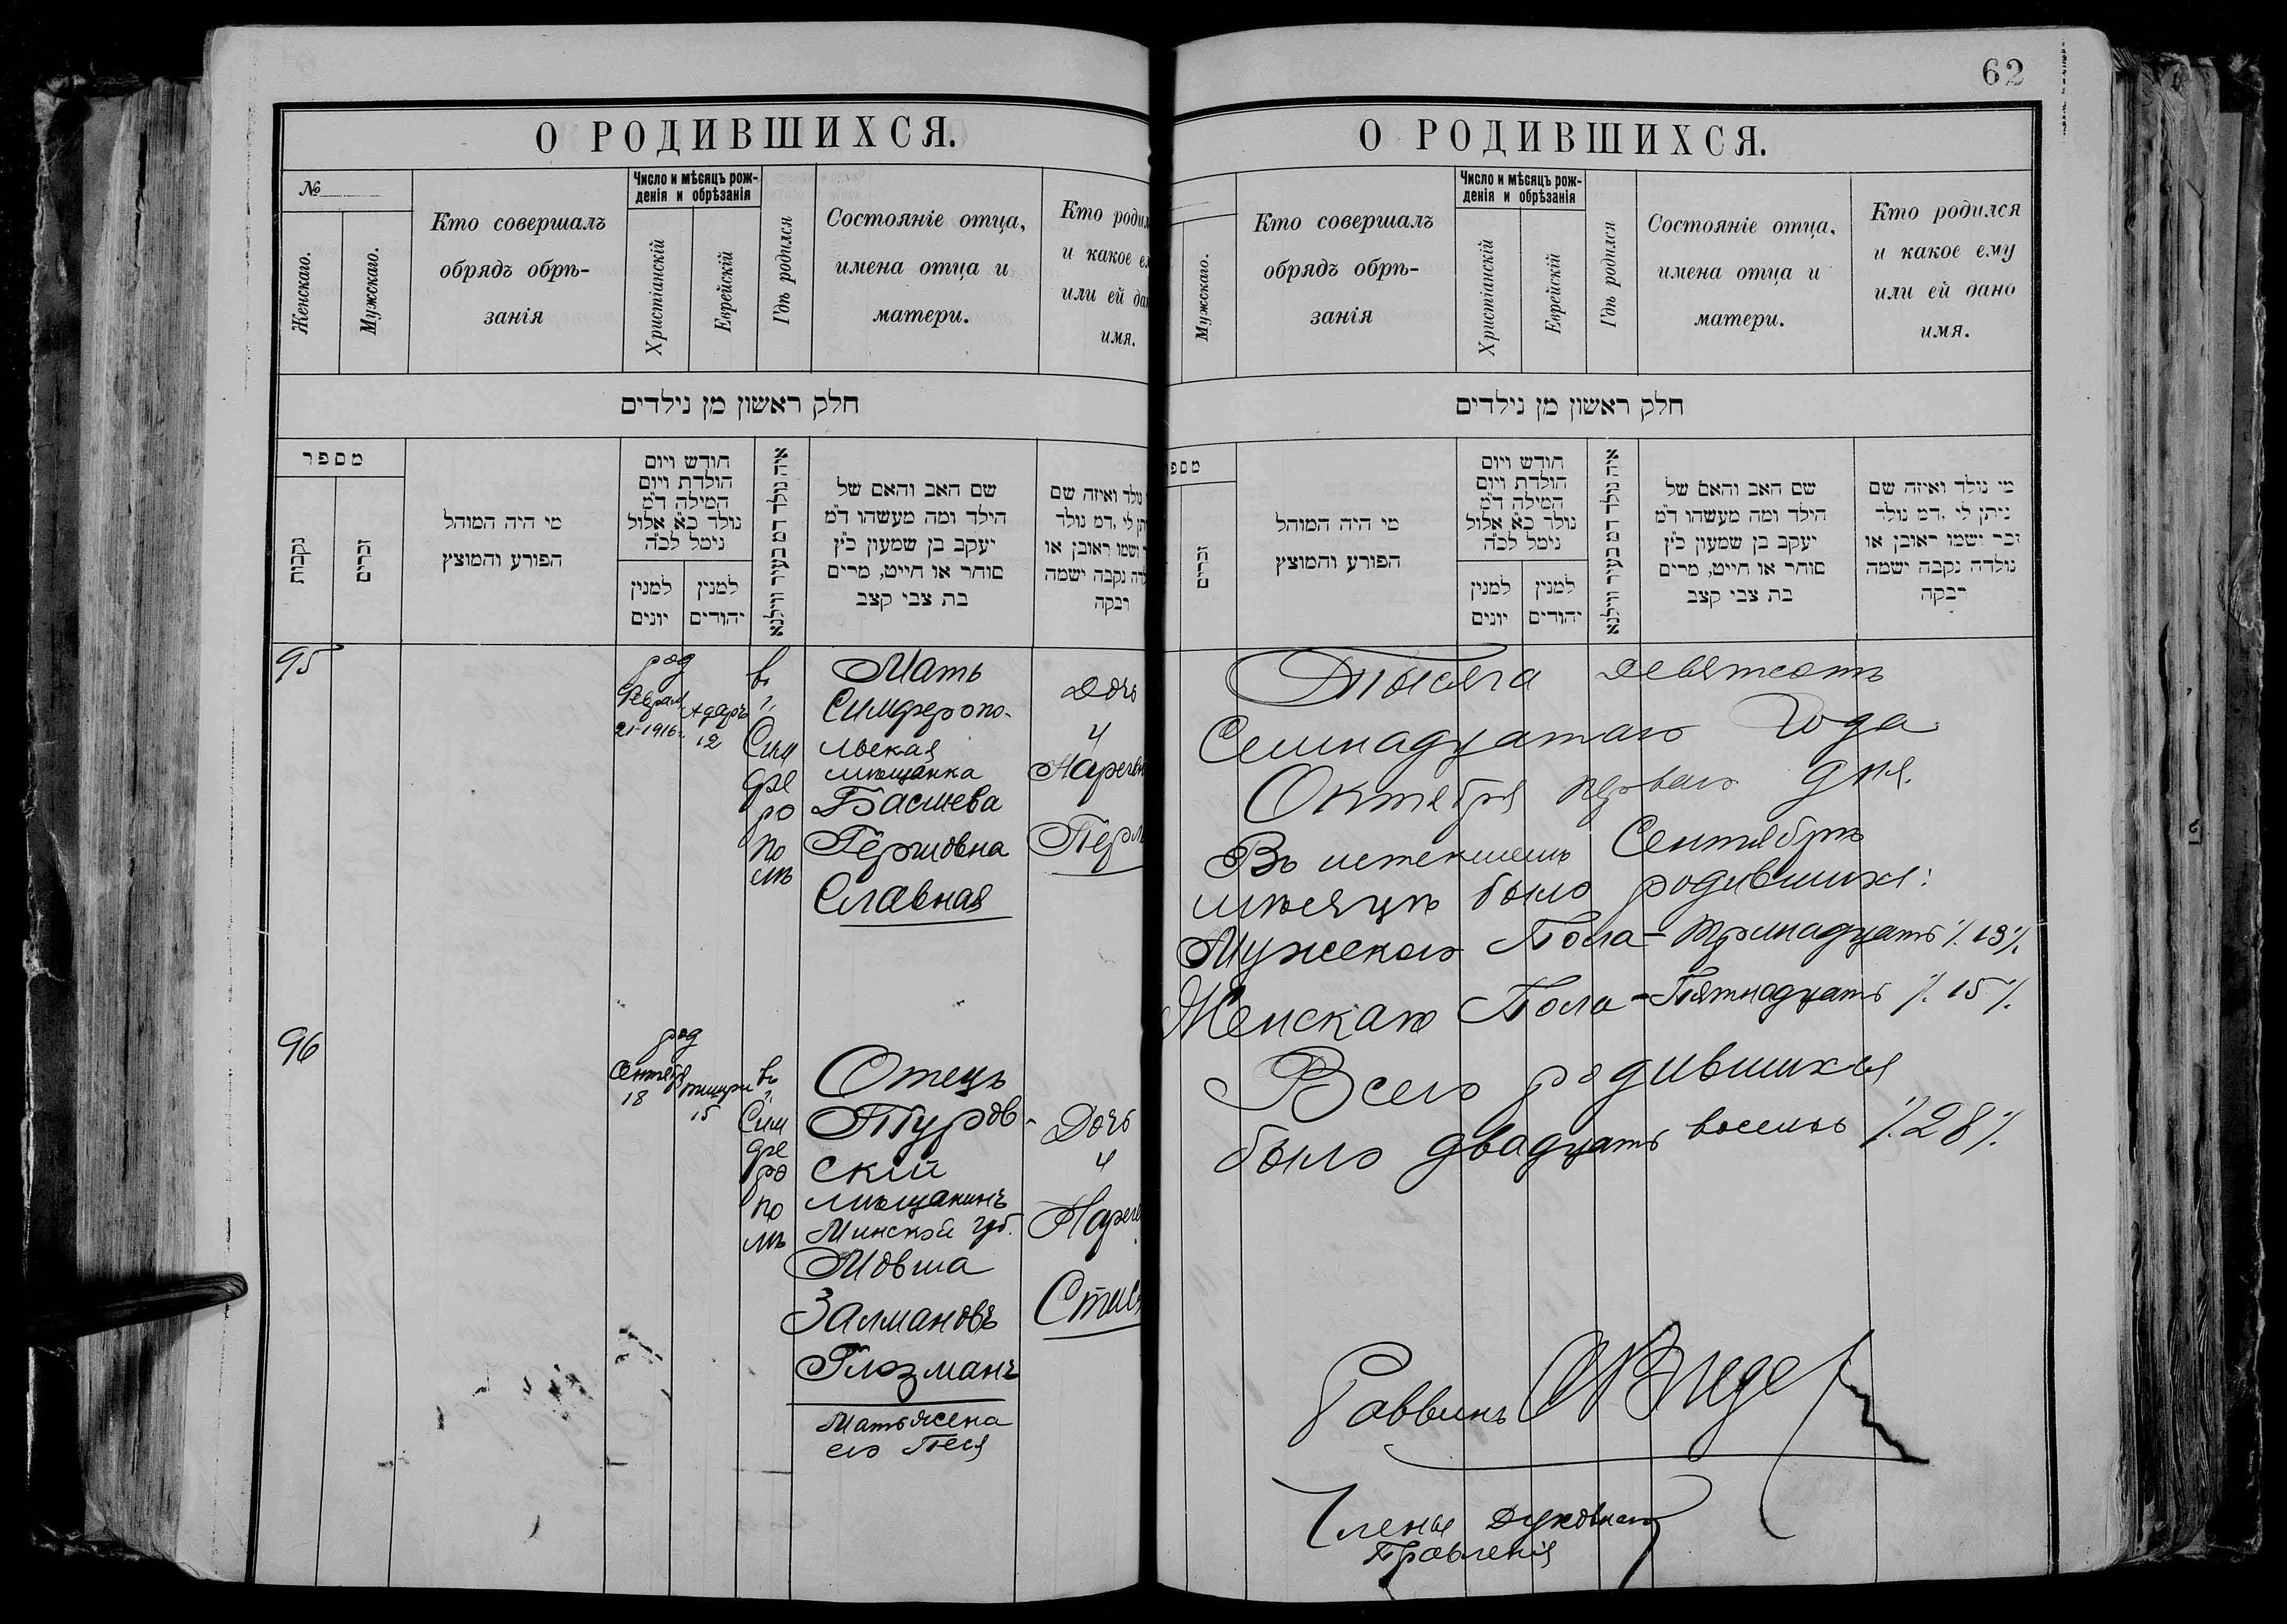 О РОДИВШИХСЯ.
№
Женскаго.
Мужскаго.
Кто совершалъ
обрядъ обрѣ-
занія
Число и мѣсяцъ рож-
денія и обрѣзанія
Христіанскій
Еврейскій
Гдѣ родился
Состояніе отца,
имена отца и
матери.
Кто родил
и какое е
или ей да
имя.
חלק ראשון מן נילדים
מספר
נקבות
זכרים
מי היה המוהל
הפורע והמוצץ
חודש ויום
הולדת ויום
המילה ד״מ
נולד כ״א אלול
נימל לכ״ה
למנין
יונים
למנין
יהודים
איה נולד דמ בעיר ווילנא
שם האב והאם של
הילד ומה מעשהו ד״מ
יעקב בן שמעון כ״ץ
סוחר או חייט, מרים
בת צבי קצב
נולד ואיזה שם
תן לי ,דמ נולד
ושמו ראובן או
לדה נקבה ישמה
רבקה
95
род
Февраля
21-1916 г.
Адаръ
12
въ
г.
Сим
фе
ро
по
лѣ
Мать
Симферопо-
льская
мѣщанка
Басшева
Гершовна
Славная
Дочь
и
Нарече
Перл
96
род
Сентября
18
Тишри
15
въ
г.
Сим
фе
ро
по
лѣ
Отецъ
Туров-
скій
мѣщанинъ
Минской губ.
Мовша
Залмановъ
Глозманъ
Мать жена
его Песя
Дочь
и
Нарече
62
О РОДИВШИХСЯ.
Мужскаго.
Кто совершалъ
обрядъ обрѣ-
занія
Число и мѣсяцъ рож-
денія и обрѣзанія
Христіанскій
Еврейскій
Гдѣ родился
Состояніе отца,
имена отца и
матери.
Кто родился
и какое ему
или ей дано
имя.
חלק ראשון מן נילדים
מספ
זכרים
מי היה המוהל
הפורע והמוצץ
חודש ויום
הולדת ויום
המילה ד״מ
נולד כ״א אלול
נימל לכ״ה
למנין
יונים
למנין
יהודים
איה נולד דמ בעיר ווילנא
שם האב והאם של
הילד ומה מעשהו ד״מ
יעקב בן שמעון כ״ץ
סוחר או חייט, מרים
בת צבי קצב
מי נולד ואיזה שם
ניתן לי ,דמ נולד
זכר ושמו ראובן או
נולדה נקבה ישמה
רבקה
Тысяча девятсотъ
Семнадцатаго Года
Октября перваго дня.
Въ истекшемъ Сентябрѣ
мѣсяцѣ было родившихся:
Мужского Пола - тринадцать ./. 13 ./.
Женскаго Пола - Пятнадцать ./. 15 ./.
Всего родившихся
было двадцать восемь ./. 28 ./.
Раввинъ
Члены Духовнаго
Правленія